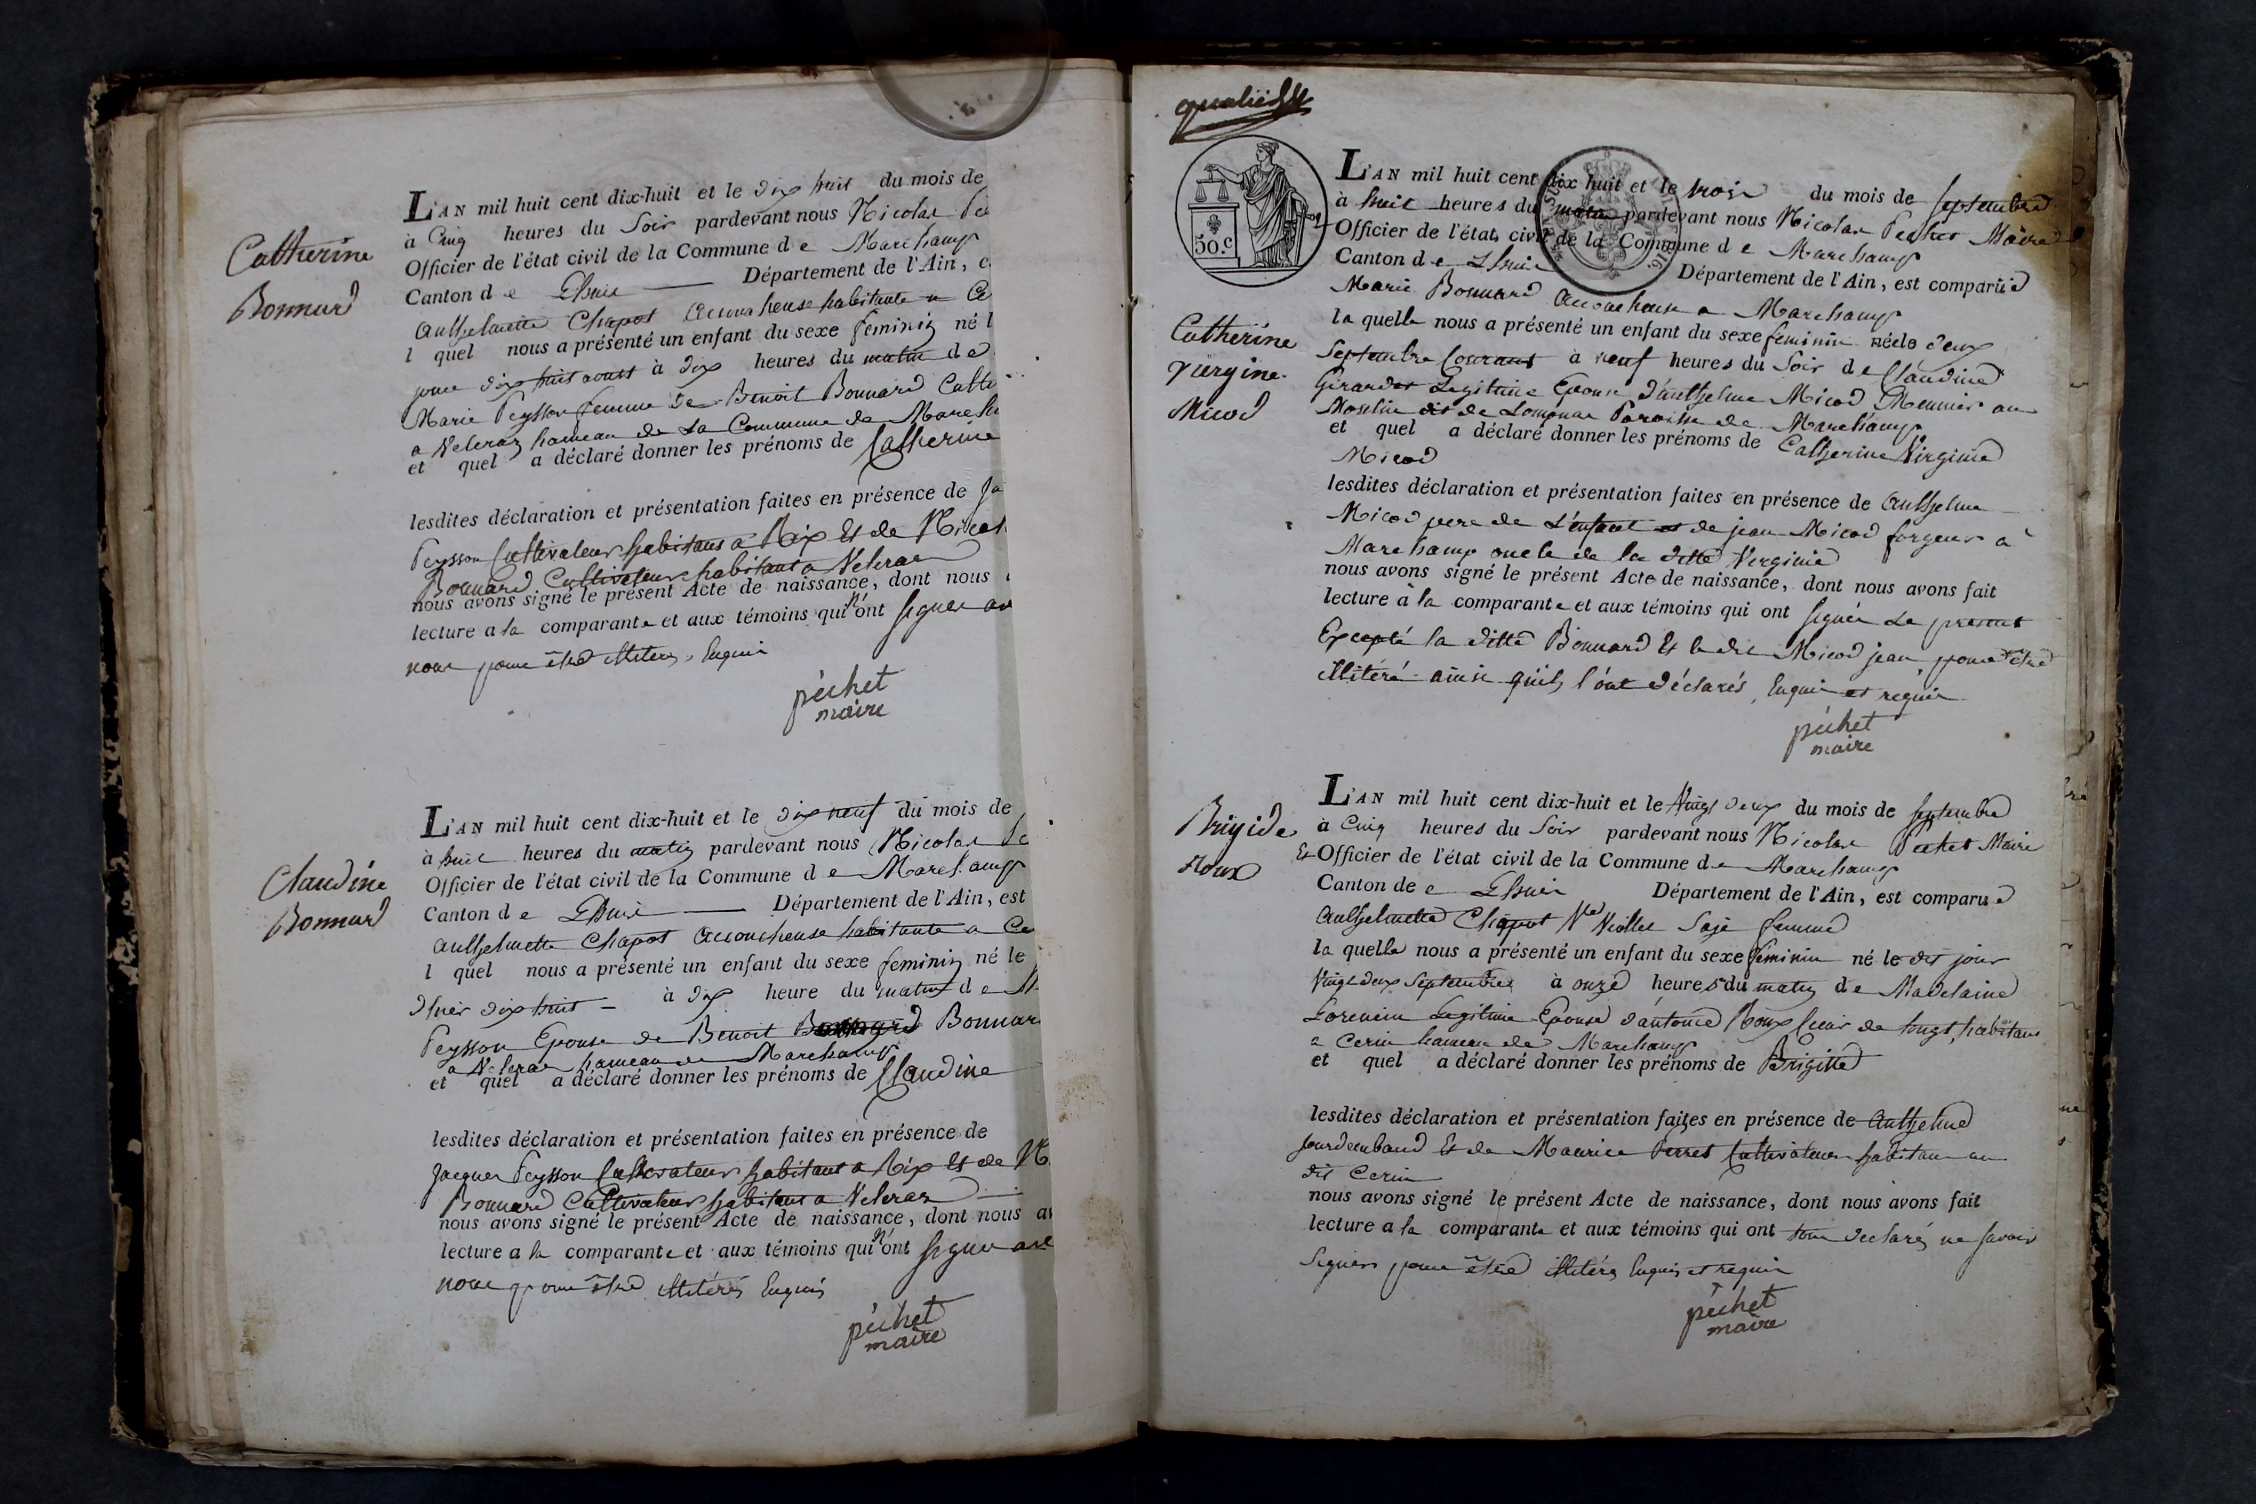 Catherine
Bonnard
L'AN mil huit cent dix-huit et le dix huit du mois de
à Cinq heures du Soir pardevant nous Nicolas
Officier de l'état civil de la Commune d e Marchamp
Canton d e Lhuis Département de l'Ain, e
Anthelmette Chapot accoucheuse habitante a Ce
l quel nous a présenté un enfant du sexe feminin né l
jour dix huit aoust à dix heures du matin de
Marie Peysson femme de Benoit Bonnard Culti
a Veleraz hameau de La Commune de March
et quel a déclaré donner les prénoms de Catherine
lesdites déclaration et présentation faites en présence de Ja
Peysson Cultivateur habitant a Rix Et de Nicol
Bonnard Cultivateur habitant a Veleraz
nous avons signé le présent Acte de naissance, dont nous
lecture a la comparante et aux témoins qui n'ont signer av
nous pour être illiterés, Enquis
péchet
maire
Claudine
Bonnard
L'AN mil huit cent dix-huit et le dix neuf du mois de
à huit heures du matin pardevant nous Nicolas Pe
Officier de l'état civil de la Commune d e Marchamp
Canton d e Lhuis Département de l'Ain, est
Anthelmette Chapot accoucheuse habitante a Ce
l quel nous a présenté un enfant du sexe feminin né le
d'hier dix huit à dix heure du matin d e M
Peysson Epouse de Benoit Bonnar
a Veleraz hameau de Marchamp
et quel a déclaré donner les prénoms de Claudine
lesdites déclaration et présentation faites en présence de
Jacques Peysson Cultivateur habitant a Rix Et de N
Bonnard Cultivateur habitant a Veleraz
nous avons signé le présent Acte de naissance, dont nous av
lecture a la comparante et aux témoins qui n'ont signer ave
nous pour être illitérés Enquis
péchet
maire
50.c
Catherine
Viergine
Micod
L'AN mil huit cent dix huit et le trois du mois de Septembre
à huit heures du matin pardevant nous Nicolas Pechet Maire
Officier de l'état civil de la Commune d e Marchamp
Canton d e Lhuis Département de l'Ain, est comparüe
Marie Bonnard accoucheuse a Marchamp
la quelle nous a présenté un enfant du sexe feminin née le deux
Septembre Courant à neuf heures du Soir d e Claudine
Girardot Legitime Epouse d'anthelme Micod Meunier au
Moulin dit de Lomonar Paroisse de Marchamp
et quel a déclaré donner les prénoms de Catherine Virginie
Micod
lesdites déclaration et présentation faites en présence de Anthelme
Micod pere de L'enfant et de jean Micod forgeur a
Marchamp oncle de la ditte Verginie
nous avons signé le présent Acte de naissance, dont nous avons fait
lecture à la comparante et aux témoins qui ont signér Le present
Excepté la ditte Bonnard Et le dit Micod jean pour être
illitéré ainsi qu'ils l'ont déclarés, Enquis et requis
péchet
maire
Brigide
Roux
L'AN mil huit cent dix-huit et le Vingt deux du mois de septembre
à Cinq heures du Soir pardevant nous Nicolas Pechet Maire
Et Officier de l'état civil de la Commune d e Marchamp
Canton de e Lhuis Département de l'Ain, est comparue
Anthelmette Chapot Ve Viollet Saje femme
la quelle nous a présenté un enfant du sexe feminin né le dit jour
Vingt deux Septembre à onze heures du matin d e Madelaine
Legitime Epouse d'antoine Roux Cieur de longt, habitant
a Cerin hameau de Marchamp
et quel a déclaré donner les prénoms de Brigitte
lesdites déclaration et présentation faites en présence de Anthelme
Et de Maurice Perret Cultivateur habitant au
dit Cerin
nous avons signé le présent Acte de naissance, dont nous avons fait
lecture a la comparante et aux témoins qui ont tous declarés ne savoir
Signer pour être illitéré Enquis et requis
péchet
maire